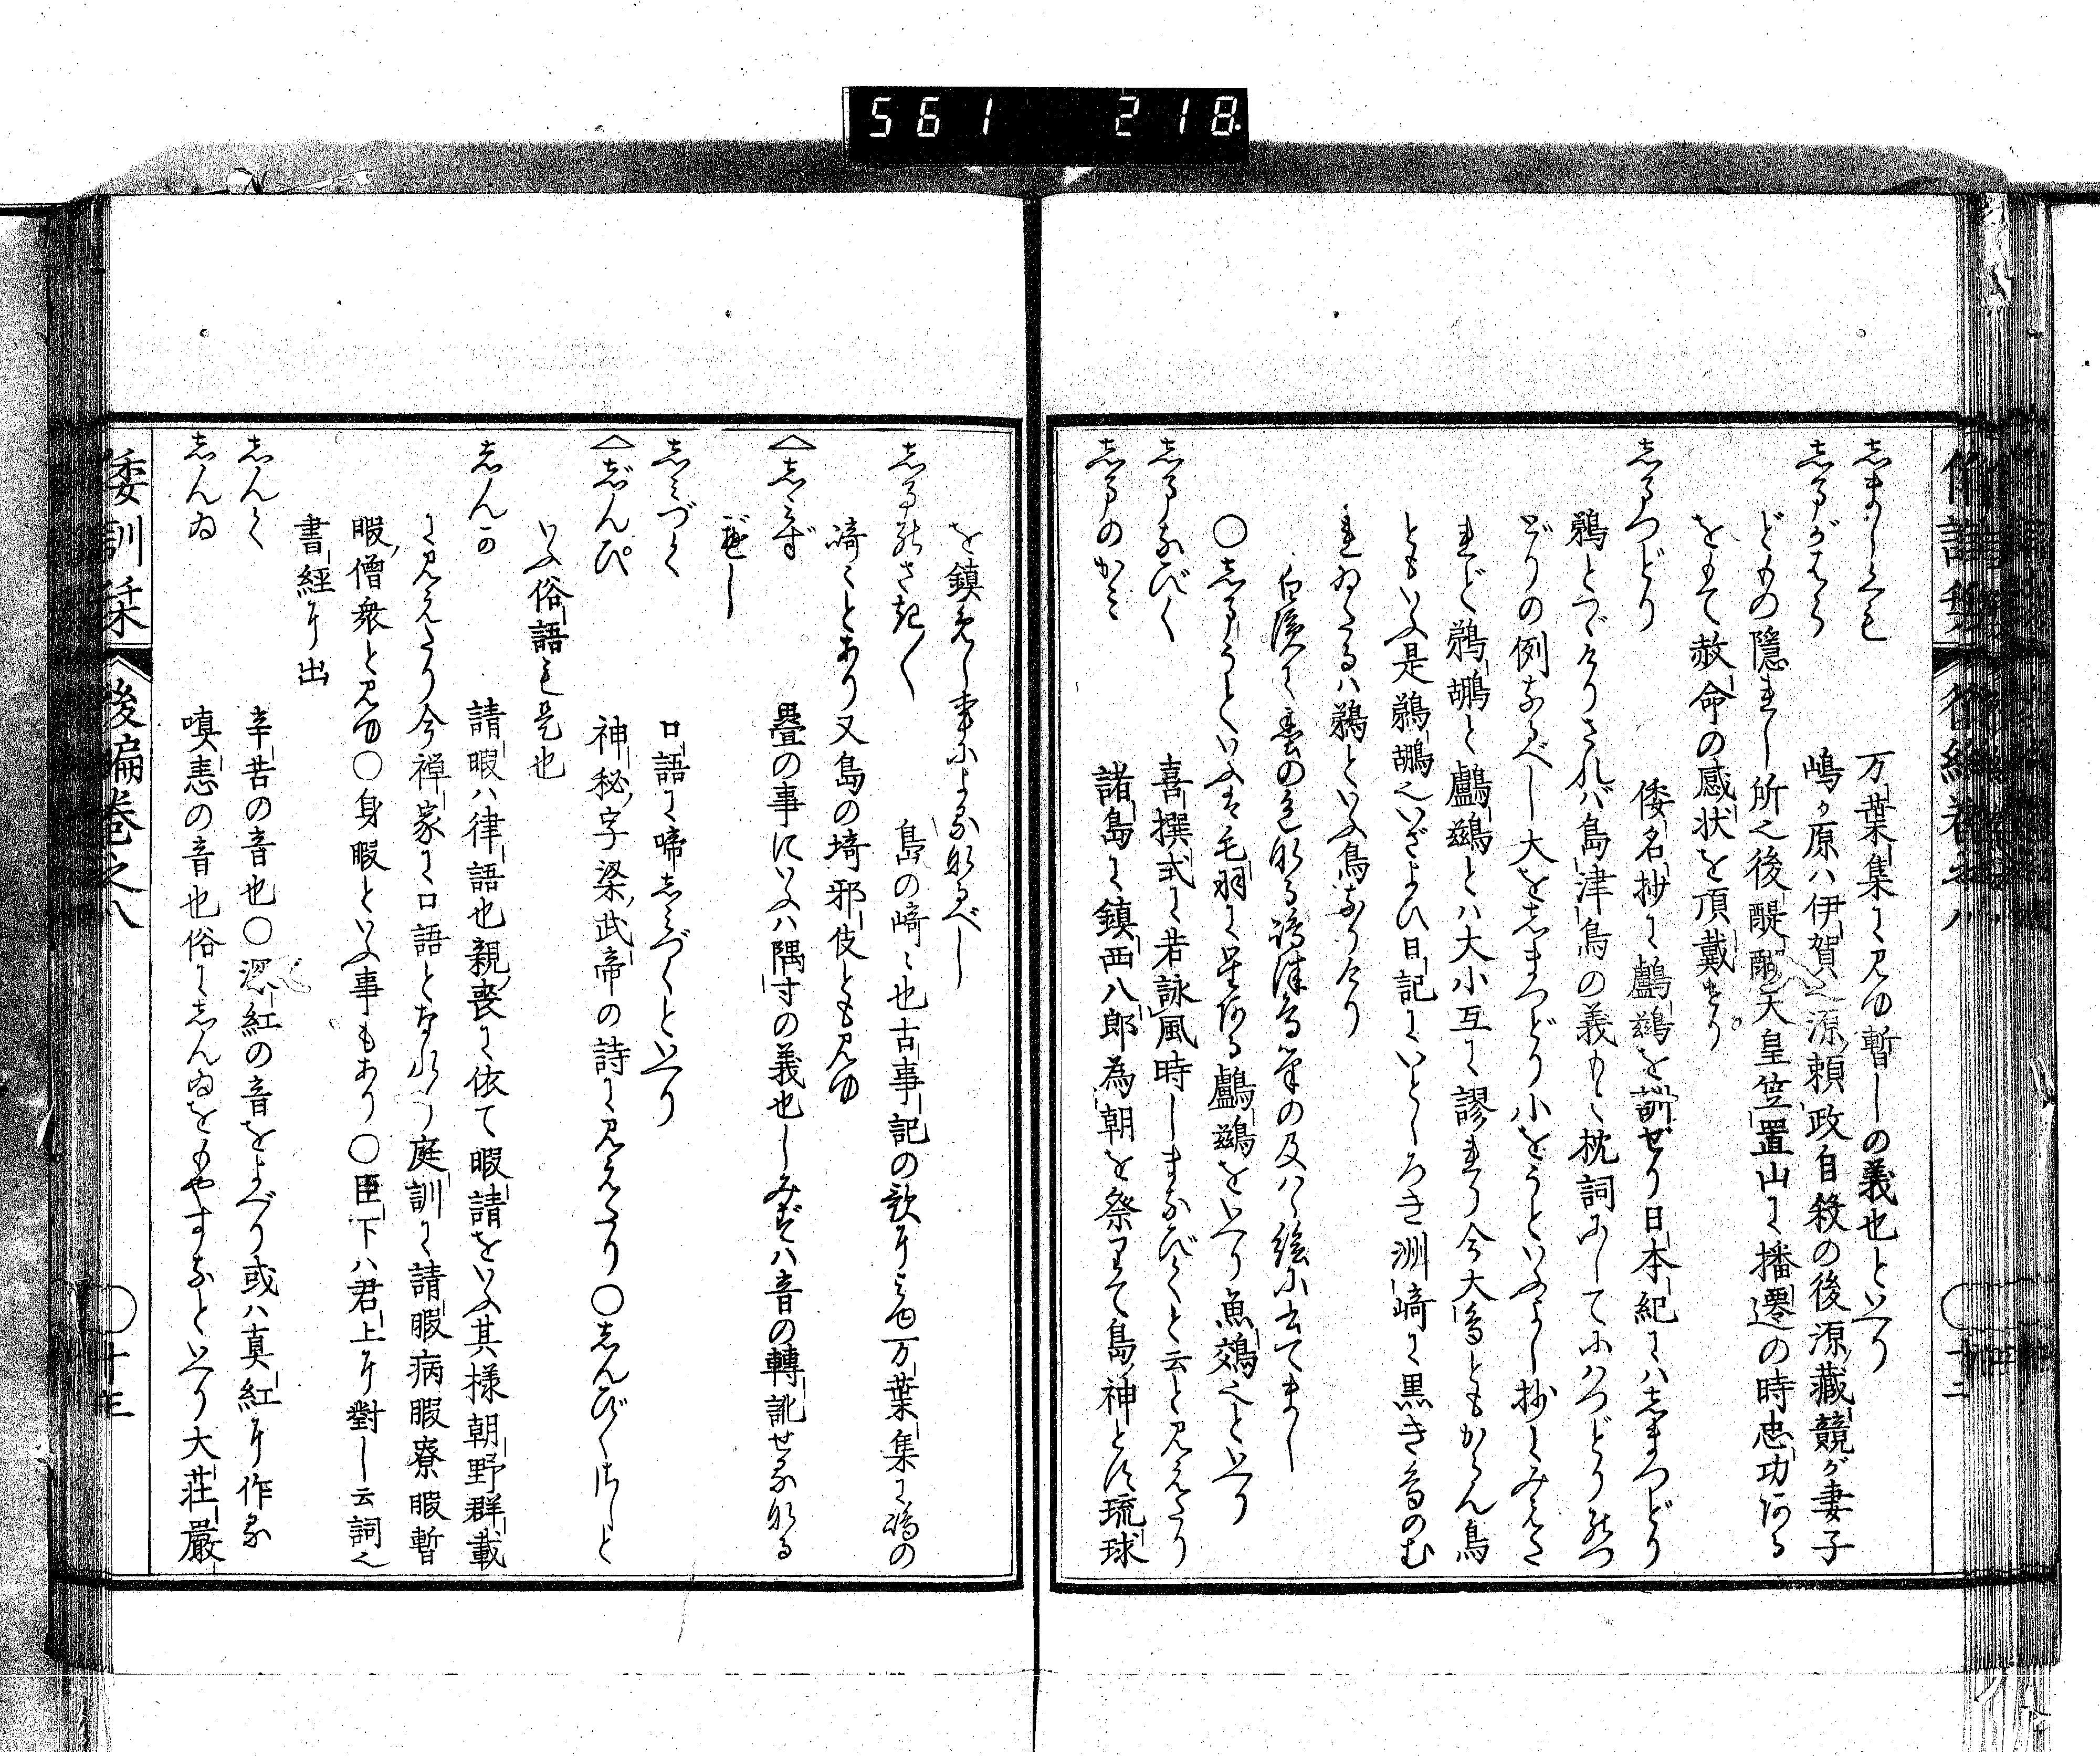 561 218
志ましくも 万葉集に見ゆ暫しの義也といへり
志まがはら 嶋か原ハ伊賀也源頼政自殺の後源藏競が妻子
どもの隠れし所也後醍醐天皇笠置山に播遷の時忠功ある
をもて赦命の感状を頂戴せり
志まつどり 倭名抄に鸕鷀を訓ぜり日本紀にハ志まつどり
鵜とつゞけりされバ島津鳥の義もと枕詞にしてにハつどり
どりの例なるべし大を志まつどり小をうといふよし抄にみえた
れど鵜鶘と鸕鷀とハ大小互に謬れり今大鳥ともがらん鳥
ともいふ是鵜鶘也いざよひ日記にいとしろき洲崎に黒き鳥のむ
れゐたるハ鵜といふ鳥なりけり
白濱に墨の色なる嶋津鳥筆の及ハヾ絵にかきてまし
〇志まうといふは毛羽に星ある鸕鷀をいへり魚鵁也といへり
志まなびく 喜撰式に若詠風時しまなびくと云と見えたり
志まのかみ 諸島に鎮西八郎為朝を祭りて島ノ神とす琉球
を鎮めし事によるなるべし
志まのさき〳〵 島の﨑々也古事記の歌にみゆ万葉集に嶋の
﨑々とあり又島の埼邪伎とも見ゆ
志みず 畳の事にいふハ隅寸の義也しみずハ音の轉訛せるなる
べし
志みづく 口語に啼志みづくといへり
志んぴ 神秘ノ字梁ノ武帝の詩に見えたり〇志んびくさしと
いふ俗語も是也
志んか 請暇ハ律語也親ノ喪に依て暇請をいふ其様朝野群載
に見えたり今禅家に口語となれり庭訓に請暇病暇寮暇暫
暇ノ僧衆と見ゆ〇身暇といふ事もあり〇臣下ハ君上に對し云詞也
書經に出
志んく 辛苦の音也〇深紅の音をよべり或ハ真紅に作る
志んゐ 嗔恚の音也俗に志んゐをもやすなといへり大荘嚴
倭訓栞 後編卷之八 〇十三